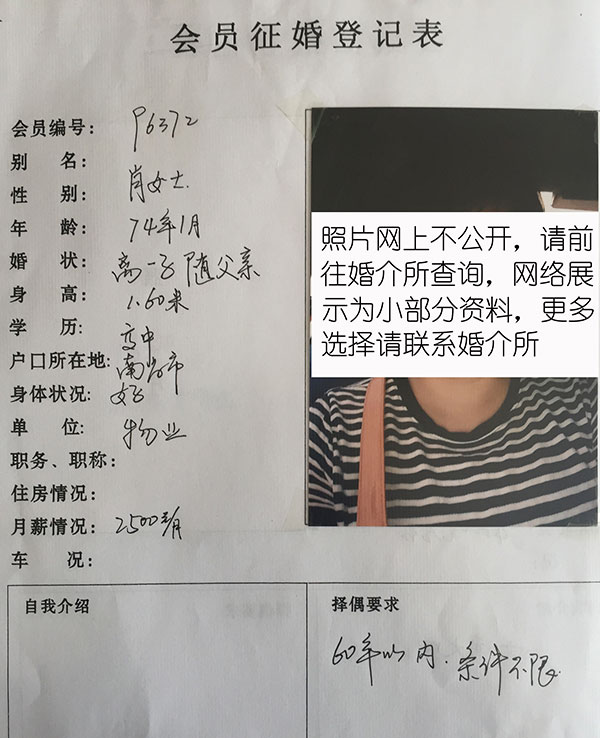 会员征婚登记表
会员编号: P6372
别 名:
性 别: 肖女士
年 龄: 74年1月
婚 状: 离一子随父亲
身 高: 1.60米
学 历: 高中
户口所在地: 南昌市
身体状况: 好
单 位: 物业
职务、职称:
住房情况:
月薪情况: 2500元/月
车 况:
照片网上不公开，请前
往婚介所查询，网络展
示为小部分资料，更多
选择请联系婚介所
自我介绍
择偶要求
60年以内.条件不限